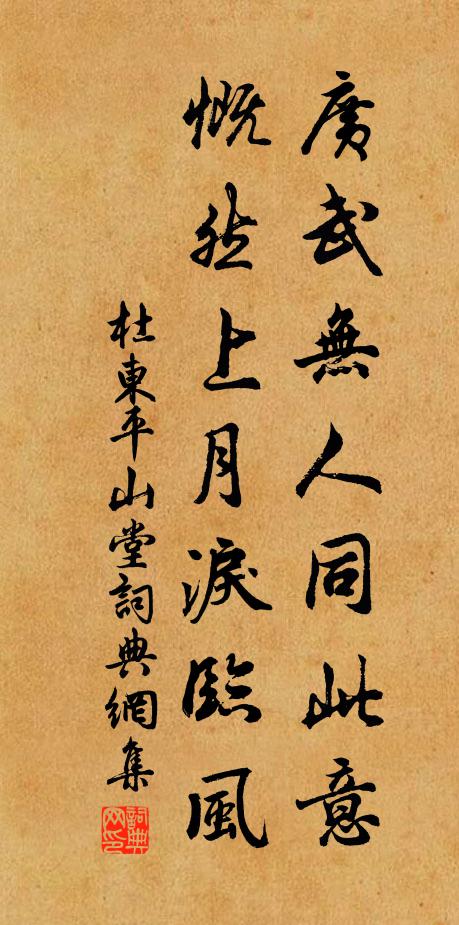 廣武無人同此意
慨然上月淚臨風
杜東平山堂詞典網集
詞典网印